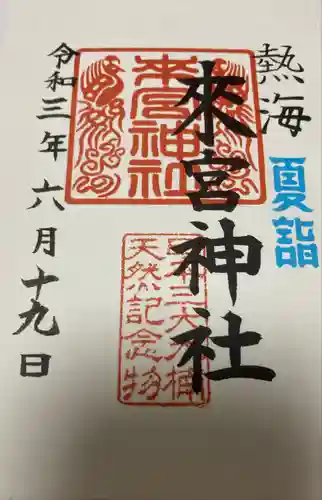 熱海
夏詣
來宮神社
来宮神社
日本三大大楠
天然記念物
令和三年六月十九日